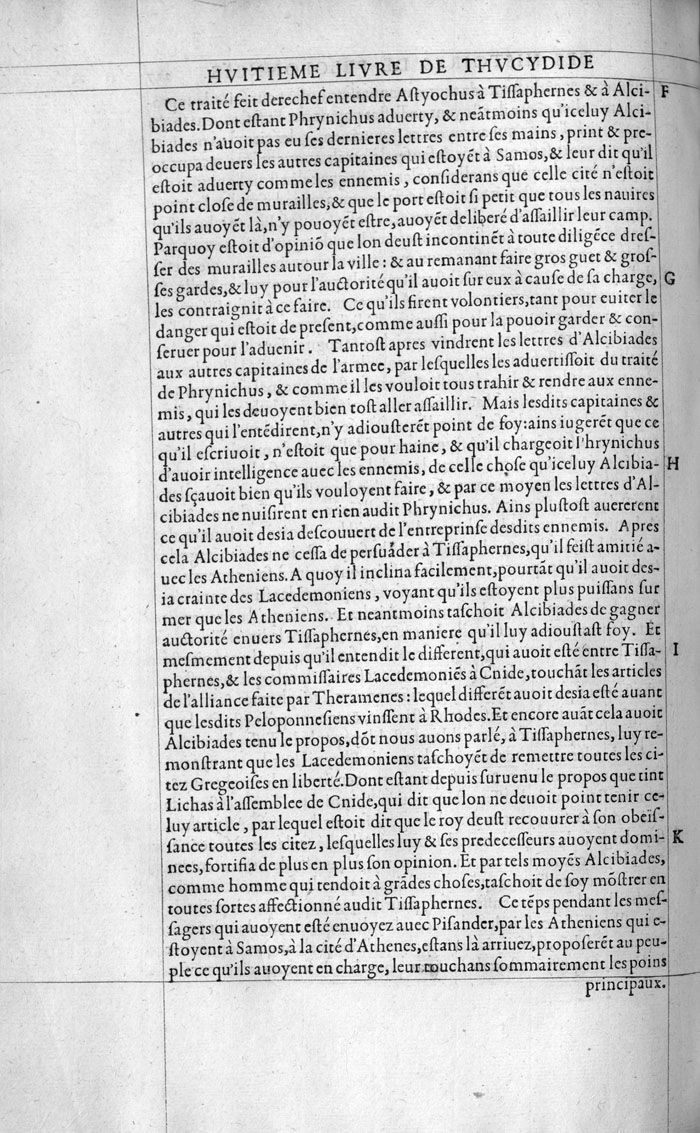 HVITIEME LIVRE DE THVCYDIDE
Ce traité feit derechef entendre Aſtyochus à Tiſſaphernes & à Alci- F
biades. Dont eſtant Phrynichus aduerty, & neãtmoins qu'iceluy Alci-
biades n'auoit pas eu ſes dernieres lettres entre ſes mains, print & pre-
occupa deuers les autres capitaines qui eſtoyẽt à Samos, & leur dit qu'il
eſtoit aduerty comme les ennemis, conſiderans que celle cité n'eſtoit
point cloſe de murailles, & que le port eſtoit ſi petit que tous les nauires
qu'ils auoyẽt là, n'y pouoyẽt eſtre, auoyẽt deliberé d'aſſaillir leur camp.
Parquoy eſtoit d'opiniõ que lon deuſt incontinẽt à toute diligẽce dreſ-
ſer des murailles autour la ville : & au remanant faire gros guet & groſ-
ſes gardes, & luy pour l'auctorité qu'il auoit ſur eux à cauſe de ſa charge, G
les contraignit à ce faire. Ce qu'ils firent volontiers, tant pour euiter le
danger qui eſtoit de preſent, comme auſſi pour la pouoir garder & con-
ſeruer pour l'aduenir. Tantoſt apres vindrent les lettres d'Alcibiades
aux autres capitaines de l'armee, par leſquelles les aduertiſſoit du traité
de Phrynichus, & comme il les vouloit tous trahir & rendre aux enne-
mis, qui les deuoyent bien toſt aller aſſaillir. Mais leſdits capitaines &
autres qui l'entẽdirent, n'y adiouſterẽt point de foy: ains iugerẽt que ce
qu'il eſcriuoit, n'eſtoit que pour haine, & qu'il chargeoit Phrynichus
d'auoir intelligence auec les ennemis, de celle choſe qu'iceluy Alcibia- H
des ſçauoit bien qu'ils vouloyent faire, & par ce moyen les lettres d'Al-
cibiades ne nuiſirent en rien audit Phrynichus. Ains pluſtoſt auererent
ce qu'il auoit deſia deſcouuert de l'entreprinſe deſdits ennemis. Apres
cela Alcibiades ne ceſſa de perſuader à Tiſſaphernes, qu'il feiſt amitié a-
uec les Atheniens. A quoy il inclina facilement, pourtãt qu'il auoit deſ-
ia crainte des Lacedemoniens, voyant qu'ils eſtoyent plus puiſſans ſur
mer que les Atheniens. Et neantmoins taſchoit Alcibiades de gagner
auctorité enuers Tiſſaphernes, en maniere qu'il luy adiouſtaſt foy. Et
meſmement depuis qu'il entendit le different, qui auoit eſté entre Tiſſa- I
phernes, & les commiſſaires Lacedemoniẽs à Cnide, touchãt les articles
de l'alliance faite par Theramenes: lequel differẽt auoit deſia eſté auant
que leſdits Peloponneſiens vinſſent à Rhodes. Et encore auãt cela auoit
Alcibiades tenu le propos, dõt nous auons parlé, à Tiſſaphernes, luy re-
monſtrant que les Lacedemoniens taſchoyẽt de remettre toutes les ci-
tez Gregeoiſes en liberté. Dont eſtant depuis ſuruenu le propos que tint
Lichas à l'aſſemblee de Cnide, qui dit que lon ne deuoit point tenir ce-
luy article, par lequel eſtoit dit que le roy deuſt recouurer à ſon obeïſ-
ſance toutes les citez, leſquelles luy & ſes predeceſſeurs auoyent domi- K
nees, fortifia de plus en plus ſon opinion. Et par tels moyẽs Alcibiades,
comme homme qui tendoit à grãdes choſes, taſchoit de ſoy mõſtrer en
toutes ſortes affectionné audit Tiſſaphernes. Ce tẽps pendant les meſ-
ſagers qui auoyent eſté enuoyez auec Piſander, par les Atheniens qui e-
ſtoyent à Samos, à la cité d'Athenes, eſtans là arriuez, propoſerẽt au peu-
ple ce qu'ils auoyent en charge, leur touchans ſommairement les poins
principaux.